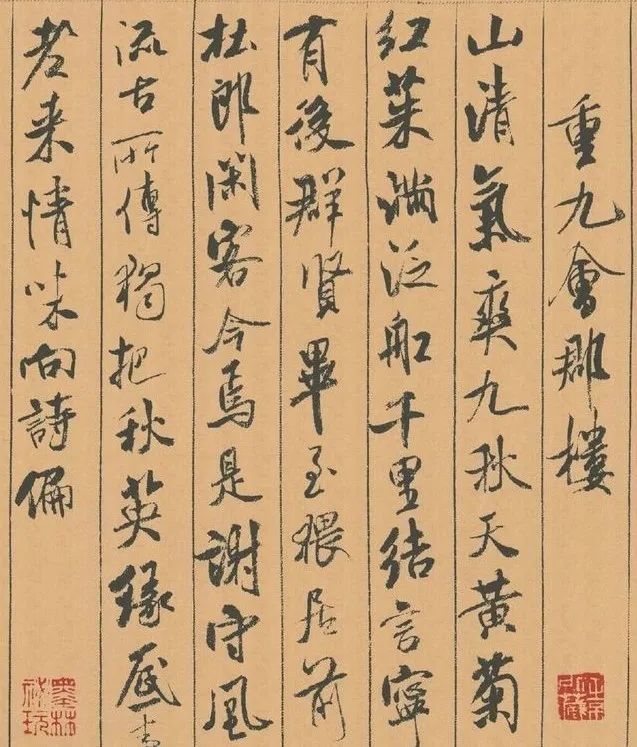 重九會郡樓
山清氣爽九秋天黃菊
紅茱滿泛舩千里結言寧
有後群賢畢至猥居前
杜郎閑客今焉是謝守風
流古所傳獨把秋英緣底事
老来情味向詩偏
墨林秘玩